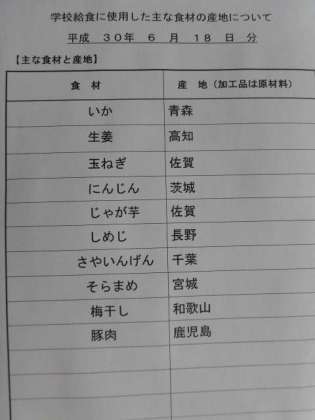 学校給食に使用した主な食材の産地について
平成 30年 6 月 18 日 分
【主な食材と産地】
食 材 産 地（加工品は原材料）
いか 青森
生姜 高知
玉ねぎ 佐賀
にんじん 茨城
じゃが芋 佐賀
しめじ 長野
さやいんげん 千葉
そらまめ 宮城
梅干し 和歌山
豚肉 鹿児島